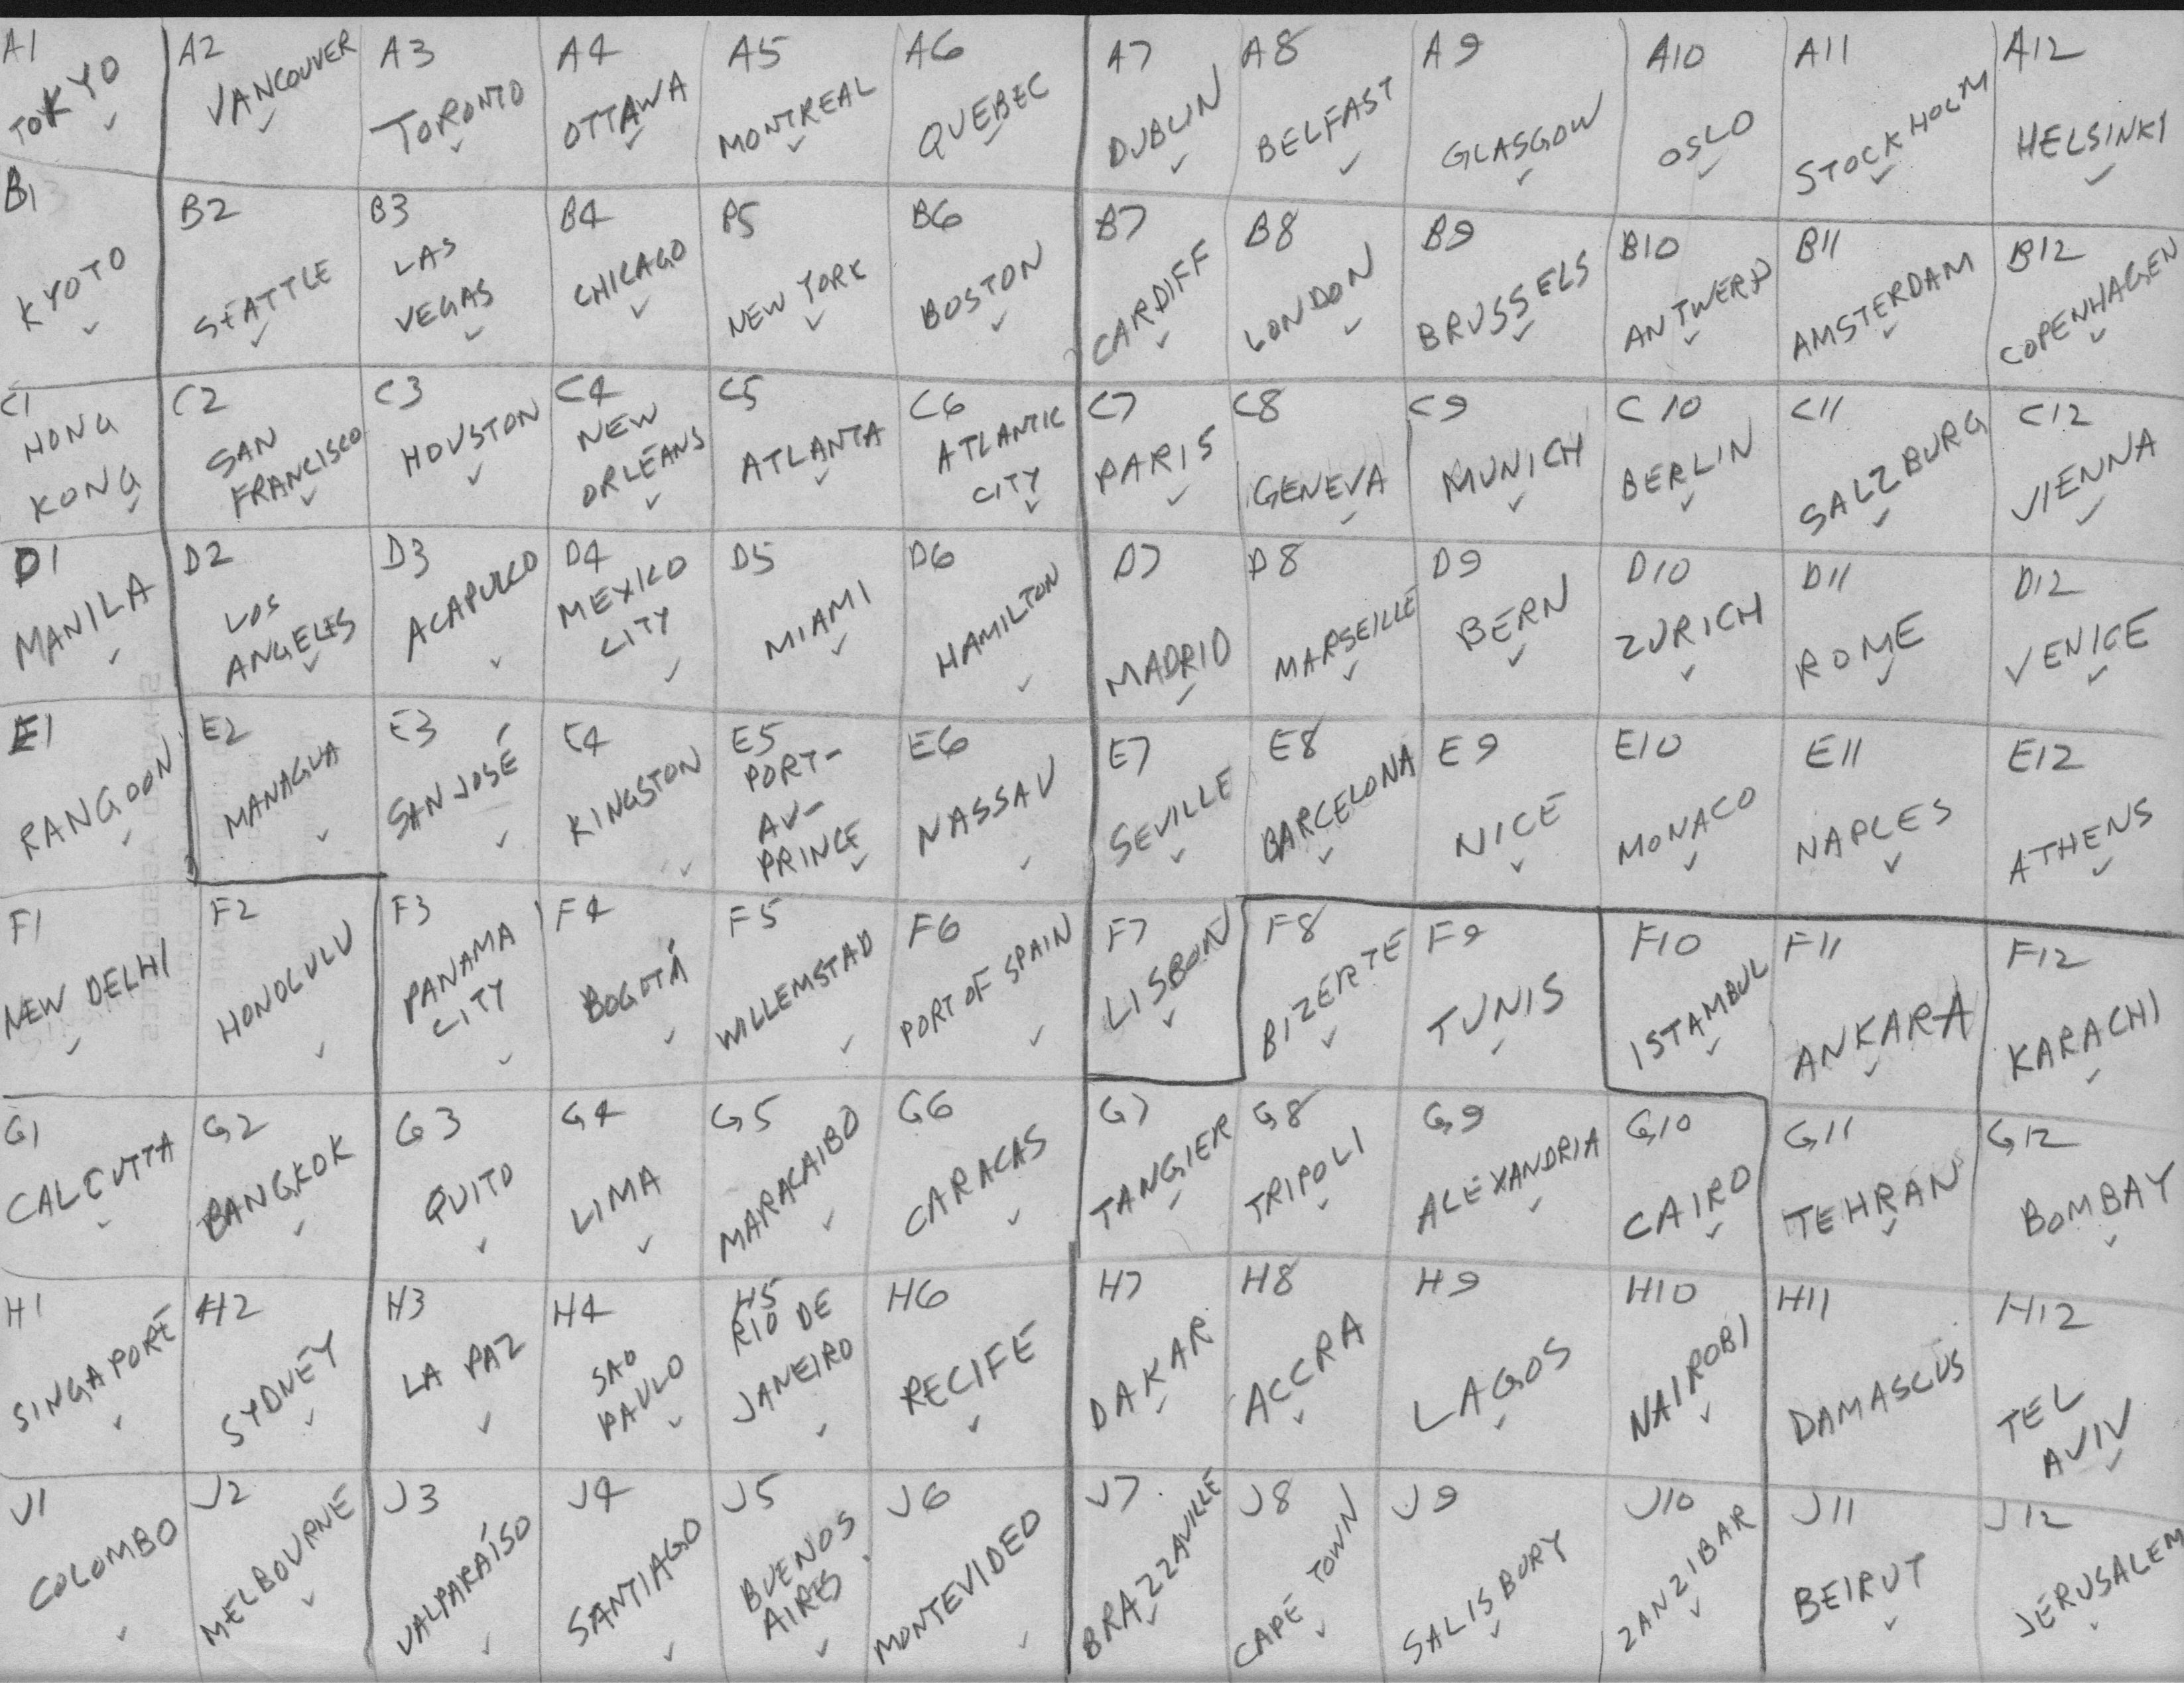 A1
TOKYO
A2
VANCOUVER
A3
TORONTO
A4
OTTAWA
A5
MONTREAL
A6
QUEBEC
A7
DUBLIN
A8
BELFAST
A9
GLASGOW
A10
OSLO
A11
STOCKHOLM
A12
HELSINKI
B1
KYOTO
B2
SEATTLE
B3
LAS
VEGAS
B4
CHICAGO
B5
NEW YORK
B6
BOSTON
B7
CARDIFF
B8
LONDON
B9
BRUSSELS
B10
ANTWERP
B11
AMSTERDAM
B12
COPENHAGEN
C1
HONG
KONG
C2
SAN
FRANCISCO
C3
HOUSTON
C4
NEW
ORLEANS
C5
ATLANTA
C6
ATLANTIC
CITY
C7
PARIS
C8
GENEVA
C9
MUNICH
C10
BERLIN
C11
SALZBURG
C12
VIENNA
D1
MANILA
D2
LOS
ANGELES
D3
ACAPULCO
D4
MEXICO
CITY
D5
MIAMI
D6
HAMILTON
D7
MADRID
D8
MARSEILLE
D9
BERN
D10
ZURICH
D11
ROME
D12
VENICE
E1
RANGOON
E2
MANAGUA
E3
SAN JOSÉ
E4
KINGSTON
E5
PORT-
AU-
PRINCE
E6
NASSAU
E7
SEVILLE
E8
BARCELONA
E9
NICE
E10
MONACO
E11
NAPLES
E12
ATHENS
F1
NEW DELHI
F2
HONOLULU
F3
PANAMA
CITY
F4
BOGOTÁ
F5
WILLEMSTAD
F6
PORT OF SPAIN
F7
LISBON
F8
BIZERTE
F9
TUNIS
F10
ISTAMBUL
F11
ANKARA
F12
KARACHI
G1
CALCUTTA
G2
BANGKOK
G3
QUITO
G4
LIMA
G5
MARACAIBO
G6
CARACAS
G7
TANGIER
G8
TRIPOLI
G9
ALEXANDRIA
G10
CAIRO
G11
TEHRAN
G12
BOMBAY
H1
SINGAPORE
H2
SYDNEY
H3
LA PAZ
H4
SAO
PAULO
H5
RIO DE
JANEIRO
H6
RECIFE
H7
DAKAR
H8
ACCRA
H9
LAGOS
H10
NAIROBI
H11
DAMASCUS
H12
TEL
AVIV
J1
COLOMBO
J2
MELBOURNE
J3
VALPARAÍSO
J4
SANTIAGO
J5
BUENOS
AIRES
J6
MONTEVIDEO
J7
BRAZZAVILLE
J8
CAPE TOWN
J9
SALISBURY
J10
ZANZIBAR
J11
BEIRUT
J12
JERUSALEM